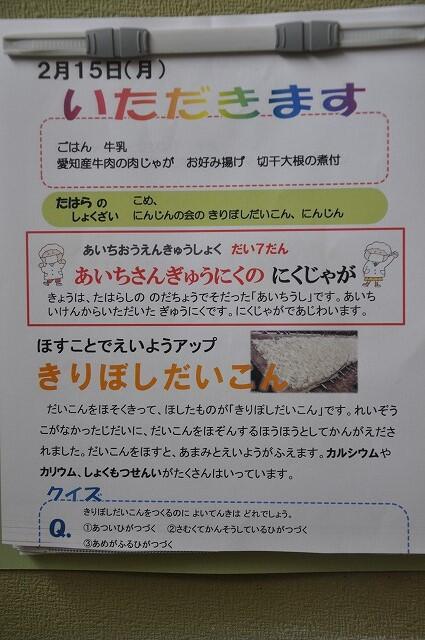 2月15日(月)
いただきます
ごはん　牛乳
愛知産牛肉の肉じゃが　お好み揚げ　切干大根の煮付
たはら の
しょくざい
こめ、
にんじんの会の きりぼしだいこん、にんじん
あいちおうえんきゅうしょく だい7だん
あいちさんぎゅうにくの にくじゃが
きょうは、たはらしの のだちょうでそだった「あいちうし」です。あいち
いけんからいただいた ぎゅうにくです。にくじゃがであじわいます。
ほすことでえいようアップ
きりぼしだいこん
だいこんをほそくきって、ほしたものが「きりぼしだいこん」です。れいぞう
こがなかったじだいに、だいこんをほぞんするほうほうとしてかんがえださ
れました。だいこんをほすと、あまみとえいようがふえます。カルシウムや
カリウム、しょくもつせんいがたくさんはいっています。
クイズ
Q.
きりぼしだいこんをつくるのに よいてんきは どれでしょう。
①あついひがつづく　②さむくてかんそうしているひがつづく
③あめがふるひがつづく